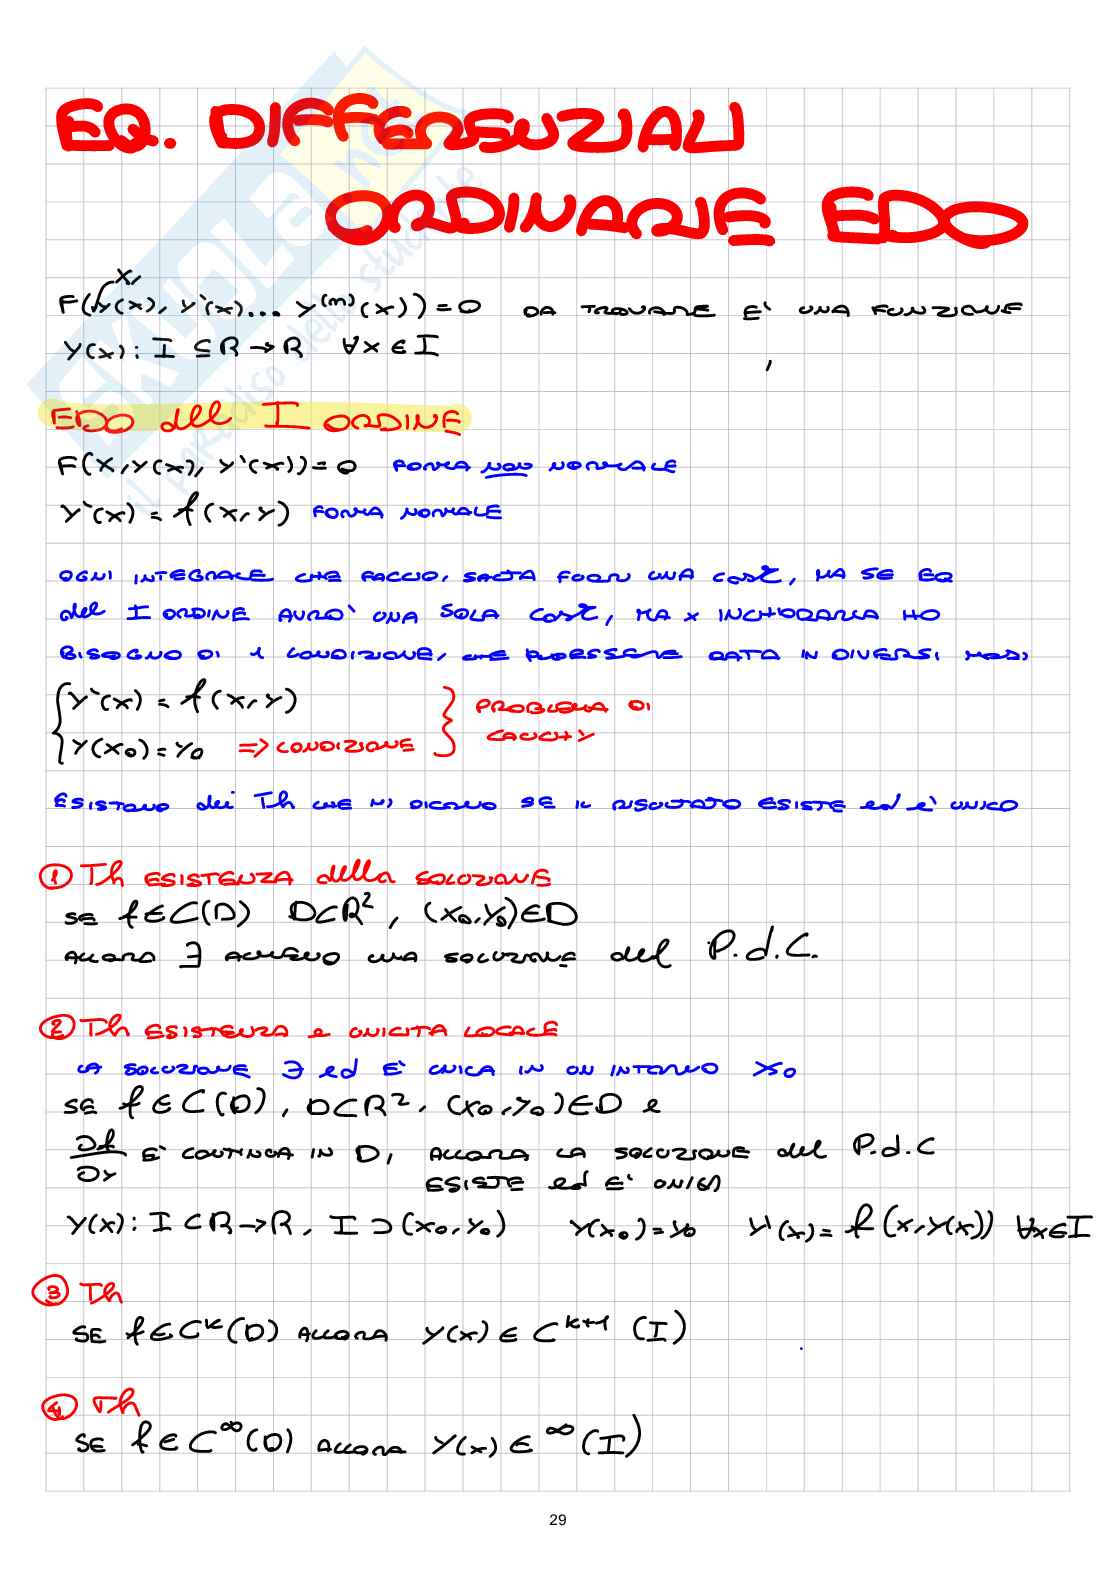 EQ. DIFFERENZIALI
ORDINARIE EDO
F(x, y(x), y'(x)... y^(m)(x)) = 0 DA TROVARE E' UNA FUNZIONE
y(x): I ⊆ R → R ∀x ∈ I
EDO del I ORDINE
F(x, y(x), y'(x)) = 0 FORMA NON NORMALE
y'(x) = f(x, y) FORMA NORMALE
OGNI INTEGRALE CHE FACCIO, SALTA FUORI UNA COST, MA SE EQ
del I ORDINE AVRO' UNA SOLA COST, MA x INCHIODARLA HO
BISOGNO DI 1 CONDIZIONE, CHE PUO ESSERE DATA IN DIVERSI MODI
{ y'(x) = f(x, y)
y(x₀) = y₀ => CONDIZIONE } PROBLEMA DI CAUCHY
ESISTONO dei Th CHE MI DICONO SE IL RISULTATO ESISTE ed e' UNICO
① Th ESISTENZA della SOLUZIONE
SE f ∈ C(D) D ⊂ R², (x₀, y₀) ∈ D
ALLORA ∃ ALMENO UNA SOLUZIONE del P.d.C.
② Th ESISTENZA e UNICITA LOCALE
LA SOLUZIONE ∃ ed E' UNICA IN UN INTORNO x₀
SE f ∈ C(D), D ⊂ R², (x₀, y₀) ∈ D e
∂f/∂y E' CONTINUA IN D, ALLORA LA SOLUZIONE del P.d.C
ESISTE ed E' UNICA
y(x): I ⊂ R → R, I ⊃ (x₀, y₀) y(x₀) = y₀ y'(x) = f(x, y(x)) ∀x ∈ I
③ Th
SE f ∈ C^k(D) ALLORA y(x) ∈ C^(k+1) (I)
④ Th
SE f ∈ C^∞(D) ALLORA y(x) ∈ ^∞(I)
29
SKUOLA.net
il paradiso dello studente